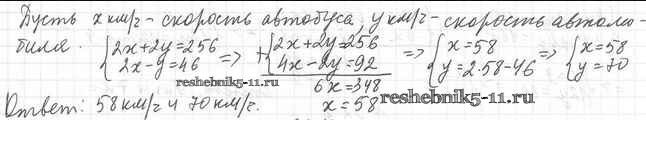 Пусть x км/г - скорость автобуса, y км/г - скорость автомо-
биля. {2x+2y=256 => +{2x+2y=256 => {x=58 => {x=58
2x-y=46 4x-2y=92 y=2·58-46 y=70
reshebnik5-11.ru 6x=348
Ответ: 58 км/г и 70 км/г. x=58 reshebnik5-11.ru